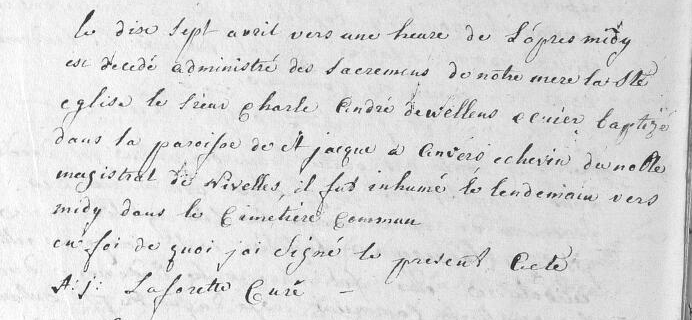 le dise sept avril vers une heure de L'apres midy
est decedé administré des sacremens de notre mere la Ste
eglise le sieur Charle André de wellens ecuier baptizé
dans la paroisse de St jacque a Anvers echevin du noble
magistrat de Nivelles, il fut inhumé le lendemain vers
midy dans le Cimetière Commun
en foi de quoi jai signé le present Acte
A: j: Laforette Curé —